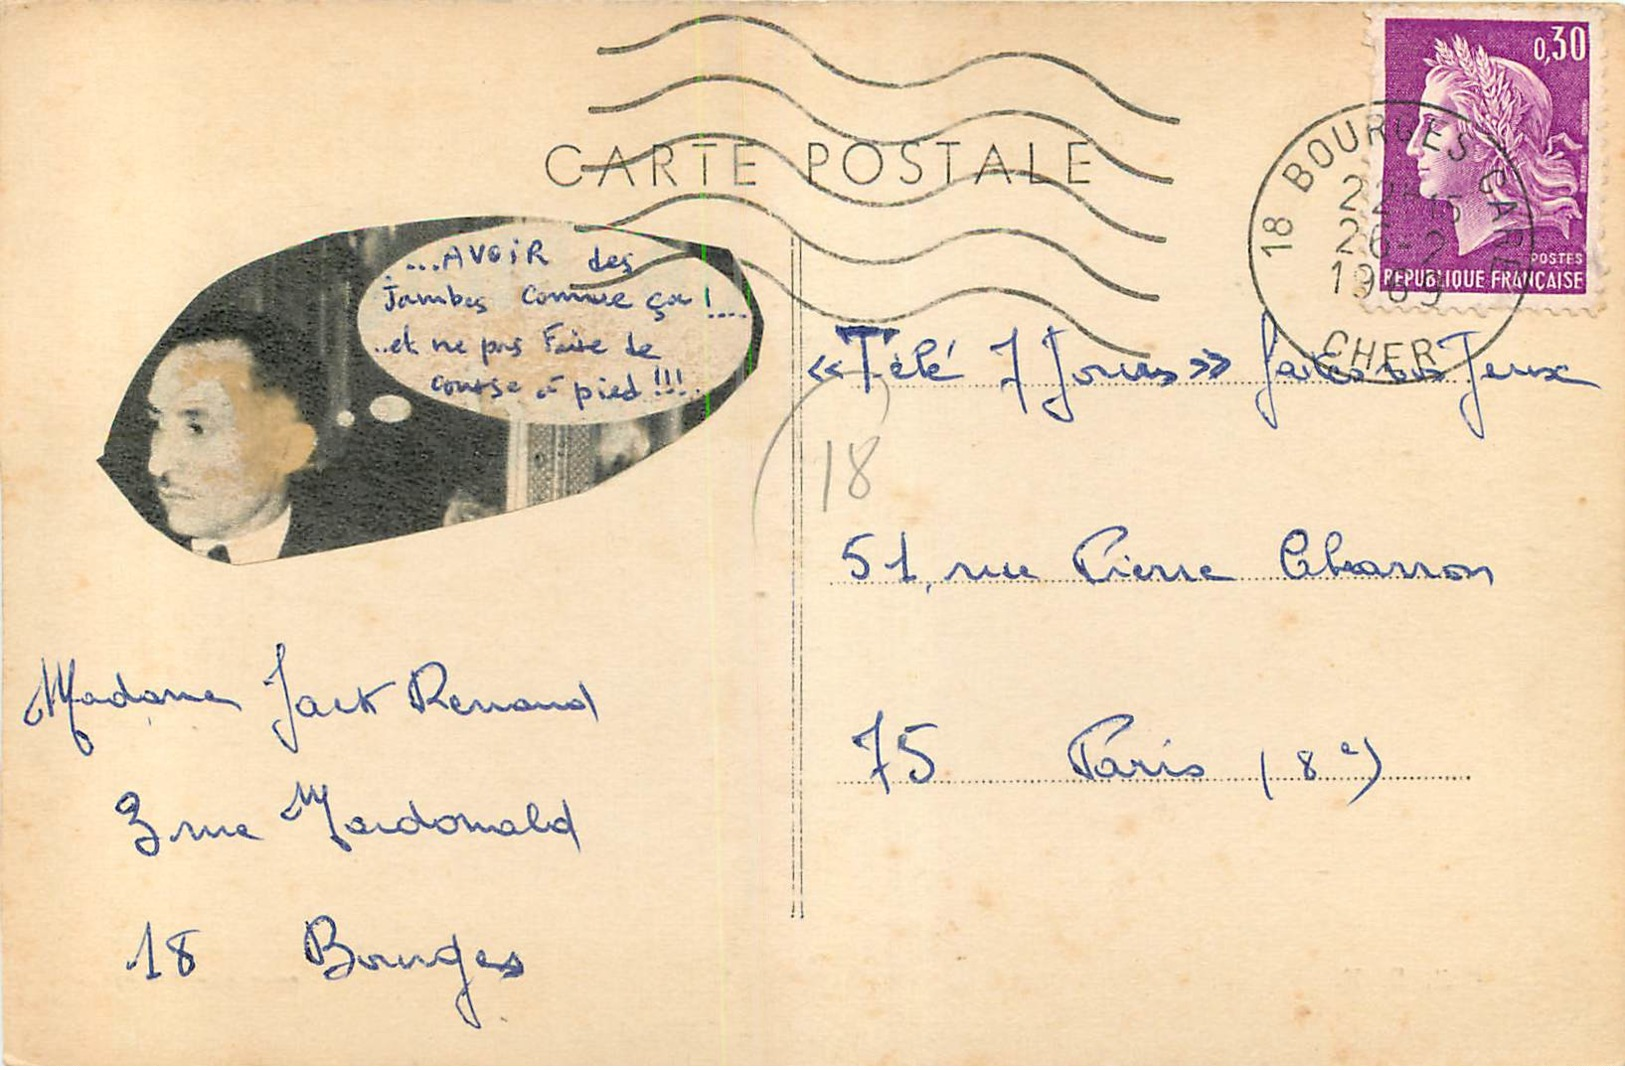 CARTE POSTALE
0,30
POSTES
REPUBLIQUE FRANÇAISE
18 BOURGES GARE
22H15
26-2
1969
CHER
....AVOIR des
Jambes comme ça !....
..et ne pas Faire de
course à pied !!!.
« Télé 7 Jours » Jeux
18
51, rue Pierre Charron
75 Paris (8e)
Madame Jack Renaud
3 rue Macdonald
18 Bourges